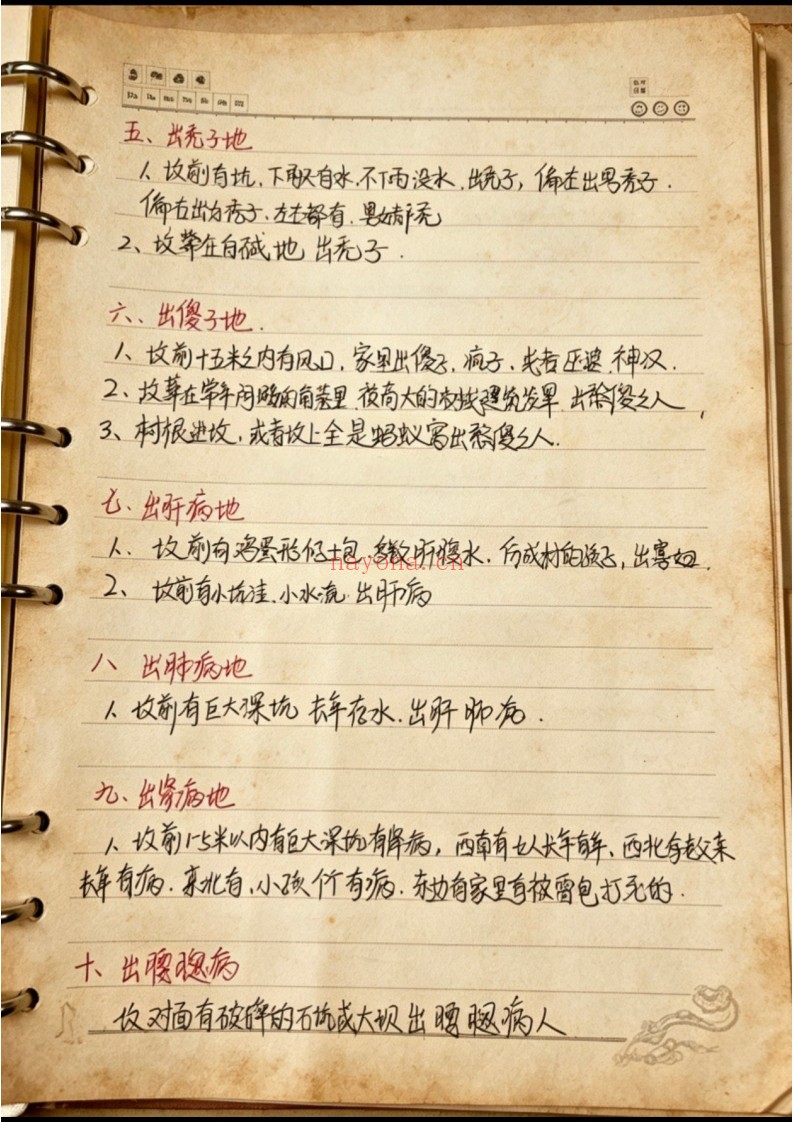 五、出秃子地
1、坟前有坑,下雨又有水,不下雨没水,出秃子,偏左出男秃子.
偏右出女秃子,左右都有,男女都秃
2、坟葬在白碱地 出秃子.
六、出傻子地.
1、坟前十五米之内有风口,家里出傻子,疯子,或者巫婆,神汉.
2、坟葬在 的 里 高大的 建筑 出憨傻之人
3、树根进坟,或者坟上全是蚂蚁窝出憨傻之人.
七、出肝病地
1、坟前有鸡蛋形的土包, 肝腹水, 的孩子,出寡妇.
nayona.cn
2、坟前有小坑洼、小水流 出肝病
八、出肺病地
1、坟前有巨大深坑 长年存水.出肝肺病.
九、出肾病地
1、坟前 米以内有巨大深坑有肾病,西南有女人长年有 、西北有老父亲
长年有病.东北有、小孩 有病.东边有家里有被雷 打死的.
十、出腰腿病
坟对面有破碎的石坑或大坝出腰腿病人